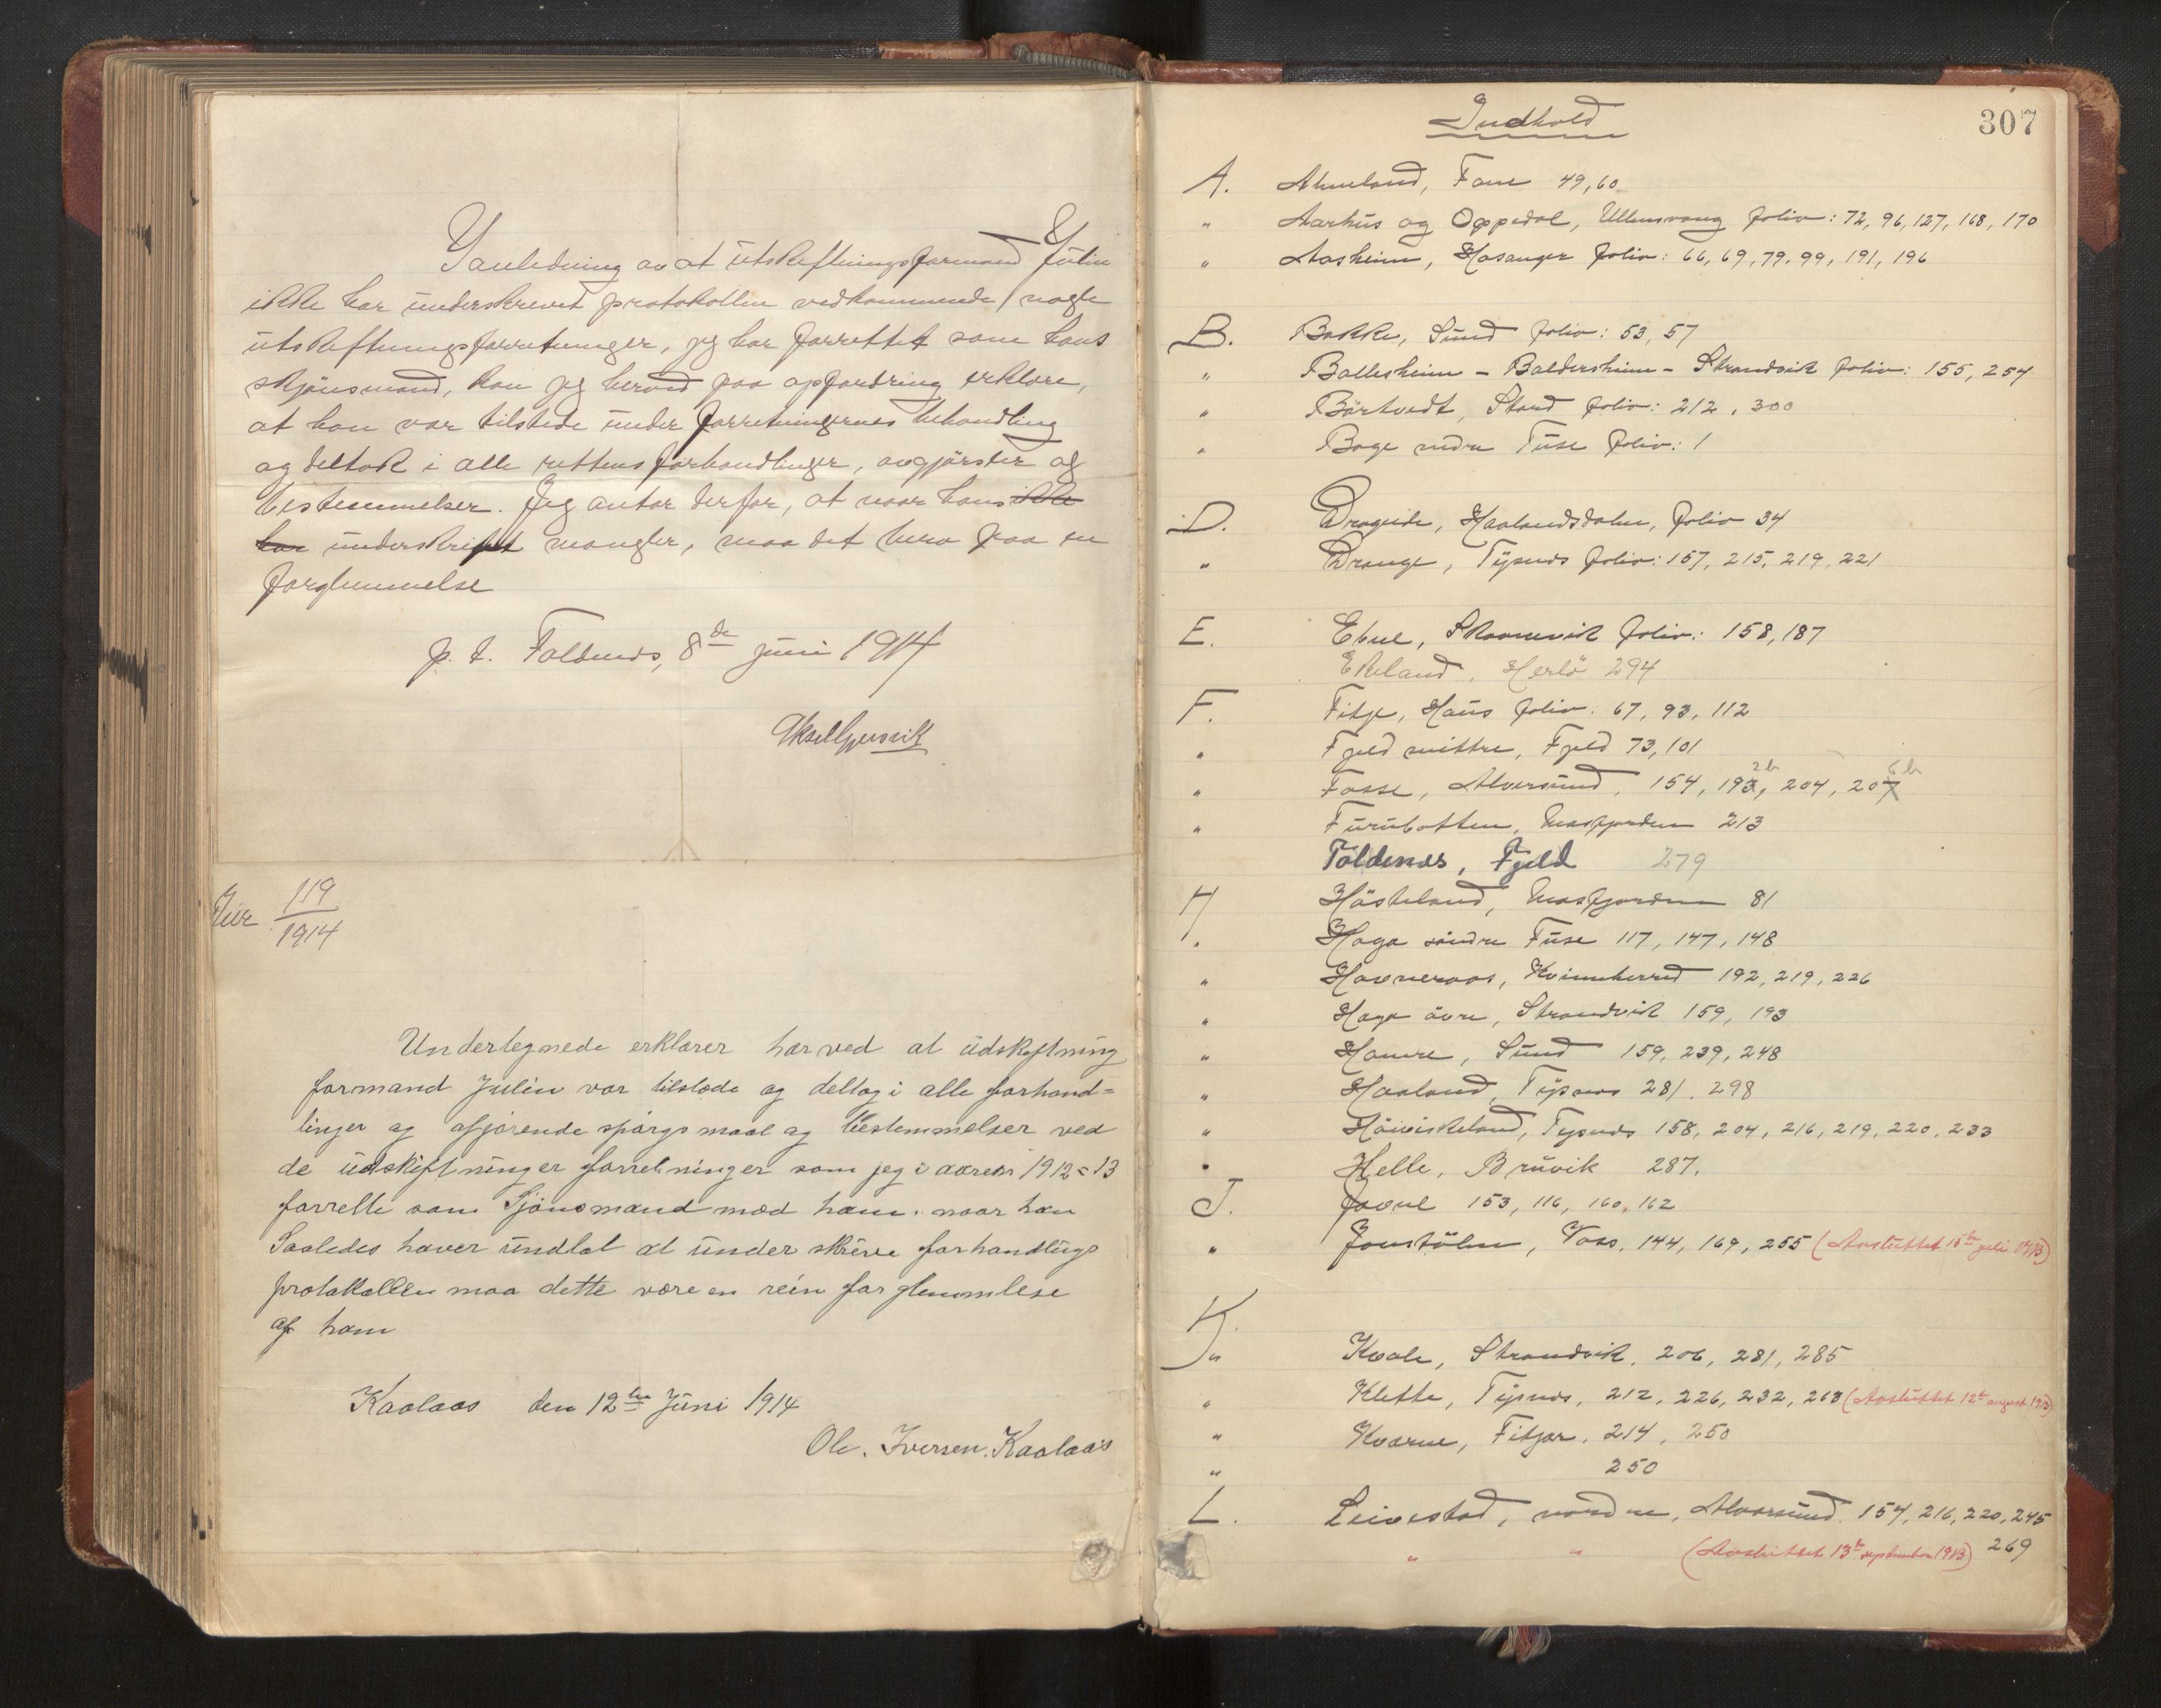 I anledning av at utskiftningsformand Julin
ikke har underskrevet protokollen vedkommende nogle
utskiftningsforretninger, jeg har forrettet som hans
skjönsmand, kan jeg herved paa opfordring erklære,
at han var tilstede under forretningernes behandling
og deltok i alle rettens forhandlinger, avgjörelser og
bestemmelser. Jeg antar derfor, at naar hans ikke
har underskrift mangler, maa det bero paa en
forglemmelse
p. t. Foldnes, 8de juni 1914
Aksel Gjersvik
119
1914
Undertegnede erklærer hærved at üdskiftning
formand Julin var tilstæde og deltog i alle forhand=
linger og afjørende spørgsmaal og bestemmelser ved
de üdskiftninger forretninger som jeg i aaren 1912=13
forrette som Sjönsmand mæd ham. naar han
Saaledes haver ündlat at ünder skrive forhandlings
protokollen maa dette være en rein forglemmlese
af ham
Kaalaas den 12te Jüni 1914
Ole. Iversen. Kaalaas
307
Indhold
A. Almeland, Fane 49, 60
" Aarhus og Oppedal, Ullensvang folio: 72, 96, 127, 168, 170
" Aasheim, Hosanger folio: 66, 69, 79, 99, 191, 196
B. Bakke, Sund folio: 53, 57
" Ballesheim - Baldersheim - Strandvik folio: 155, 254
" Börtvedt, Stord folio: 212, 300
" Boge nedre Fuse folio: 1
D. Drageide, Haalandsdalen, folio 34
" Drange, Tysnes folio: 157, 215, 219, 221
E. Ebne, Skaanevik folio: 158, 187
Ekeland, Herlö 294
F. Fitje, Haus folio: 67, 93, 112
" Fjeld mittre, Fjeld 73, 101
2b 6b
" Fosse, Alversund, 154, 193, 204, 207
" Furubotten, Masfjorden 213
Foldenes, Fjeld 279
H Hösteland, Masfjorden 81
" Haga söndre Fuse 117, 147, 148
" Havneraas, Kvinnherred 192, 219, 226
" Haga övre, Strandvik 159, 193
" Hamre, Sund 159, 239, 248
" Haaland, Tysnes 281. 298
" Höviskeland, Tysnes 158, 204, 216, 219, 220, 233
" Helle, Bruvik 287.
J. Javne 153, 116, 160, 162
" Jonstölen, Voss, 144, 169, 255 (Avsluttet 15de juli 1913)
K.
" Kvale, Strandvik, 206, 281, 285
" Klette, Tysnes, 212, 226, 232, 263 (Avsluttet 12te august 1913)
" Kvarne, Fitjar, 214, 250
" 250
L. Leivestad, nordre, Alversund 154, 216, 220, 245
" " (Avsluttet 13de september 1913) 269